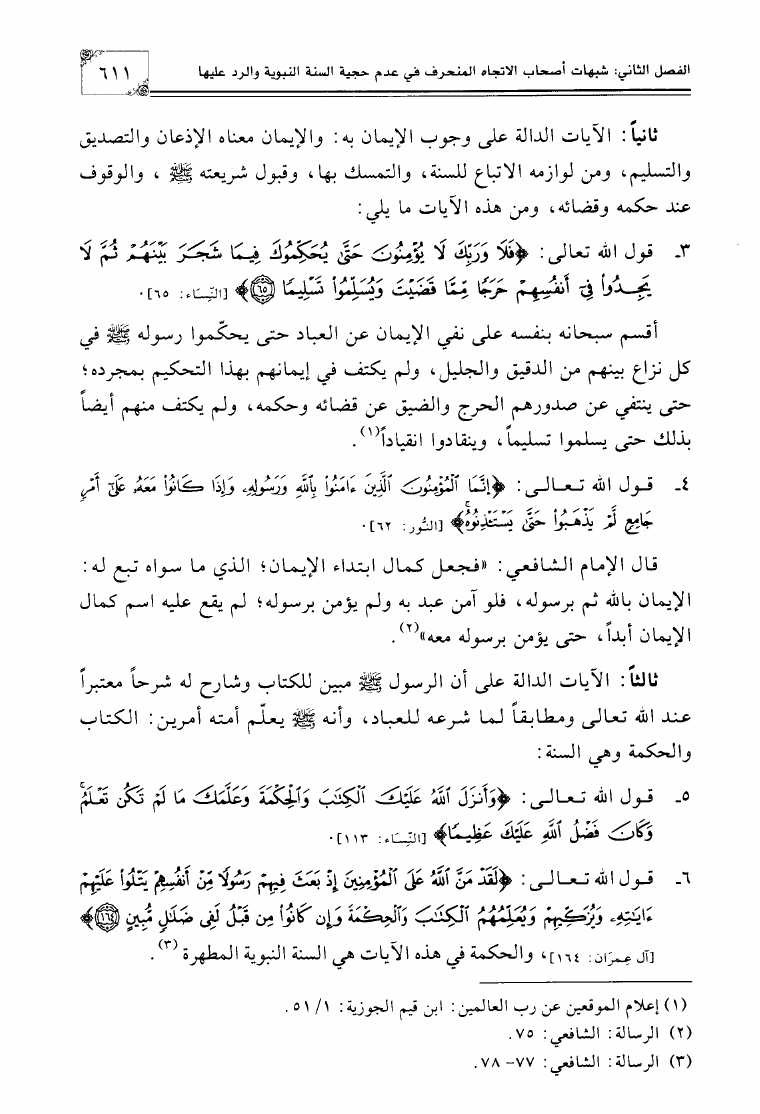 الفصل الثاني: شبهات أصحاب الاتجاه المنحرف في عدم حجية السنة النبوية والرد عليها
٦١١
ثانياً: الآيات الدالة على وجوب الإيمان به: والإيمان معناه الإذعان والتصديق
والتسليم، ومن لوازمه الاتباع للسنة، والتمسك بها، وقبول شريعته ﷺ ، والوقوف
عند حكمه وقضائه، ومن هذه الآيات ما يلي:
٣ـ قول الله تعالى: ﴿فَلَا وَرَبِّكَ لَا يُؤْمِنُونَ حَتَّىٰ يُحَكِّمُوكَ فِيمَا شَجَرَ بَيْنَهُمْ ثُمَّ لَا
يَجِدُوا۟ فِىٓ أَنفُسِهِمْ حَرَجًا مِّمَّا قَضَيْتَ وَيُسَلِّمُوا۟ تَسْلِيمًا ٦٥﴾ [النِّسَاء: ٦٥].
أقسم سبحانه بنفسه على نفي الإيمان عن العباد حتى يحكّموا رسوله ﷺ في
كل نزاع بينهم من الدقيق والجليل، ولم يكتف في إيمانهم بهذا التحكيم بمجرده؛
حتى ينتفي عن صدورهم الحرج والضيق عن قضائه وحكمه، ولم يكتف منهم أيضاً
بذلك حتى يسلموا تسليماً، وينقادوا انقياداً(١).
٤ـ قول الله تعالى: ﴿إِنَّمَا ٱلْمُؤْمِنُونَ ٱلَّذِينَ ءَامَنُوا۟ بِٱللَّهِ وَرَسُولِهِۦ وَإِذَا كَانُوا۟ مَعَهُۥ عَلَىٰٓ أَمْرٍ
جَامِعٍ لَّمْ يَذْهَبُوا۟ حَتَّىٰ يَسْتَـْٔذِنُوهُ﴾ [النُّور: ٦٢].
قال الإمام الشافعي: «فجعل كمال ابتداء الإيمان؛ الذي ما سواه تبع له:
الإيمان بالله ثم برسوله، فلو آمن عبد به ولم يؤمن برسوله؛ لم يقع عليه اسم كمال
الإيمان أبداً، حتى يؤمن برسوله معه»(٢).
ثالثاً: الآيات الدالة على أن الرسول ﷺ مبين للكتاب وشارح له شرحاً معتبراً
عند الله تعالى ومطابقاً لما شرعه للعباد، وأنه ﷺ يعلّم أمته أمرين: الكتاب
والحكمة وهي السنة:
٥ـ قول الله تعالى: ﴿وَأَنزَلَ ٱللَّهُ عَلَيْكَ ٱلْكِتَٰبَ وَٱلْحِكْمَةَ وَعَلَّمَكَ مَا لَمْ تَكُن تَعْلَمُ ۚ
وَكَانَ فَضْلُ ٱللَّهِ عَلَيْكَ عَظِيمًا﴾ [النِّسَاء: ١١٣].
٦ـ قول الله تعالى: ﴿لَقَدْ مَنَّ ٱللَّهُ عَلَى ٱلْمُؤْمِنِينَ إِذْ بَعَثَ فِيهِمْ رَسُولًا مِّنْ أَنفُسِهِمْ يَتْلُوا۟ عَلَيْهِمْ
ءَايَٰتِهِۦ وَيُزَكِّيهِمْ وَيُعَلِّمُهُمُ ٱلْكِتَٰبَ وَٱلْحِكْمَةَ وَإِن كَانُوا۟ مِن قَبْلُ لَفِى ضَلَٰلٍ مُّبِينٍ ١٦٤﴾
[آل عِمرَان: ١٦٤]، والحكمة في هذه الآيات هي السنة النبوية المطهرة(٣).
(١) إعلام الموقعين عن رب العالمين: ابن قيم الجوزية: ٥١/١.
(٢) الرسالة: الشافعي: ٧٥.
(٣) الرسالة: الشافعي: ٧٧- ٧٨.